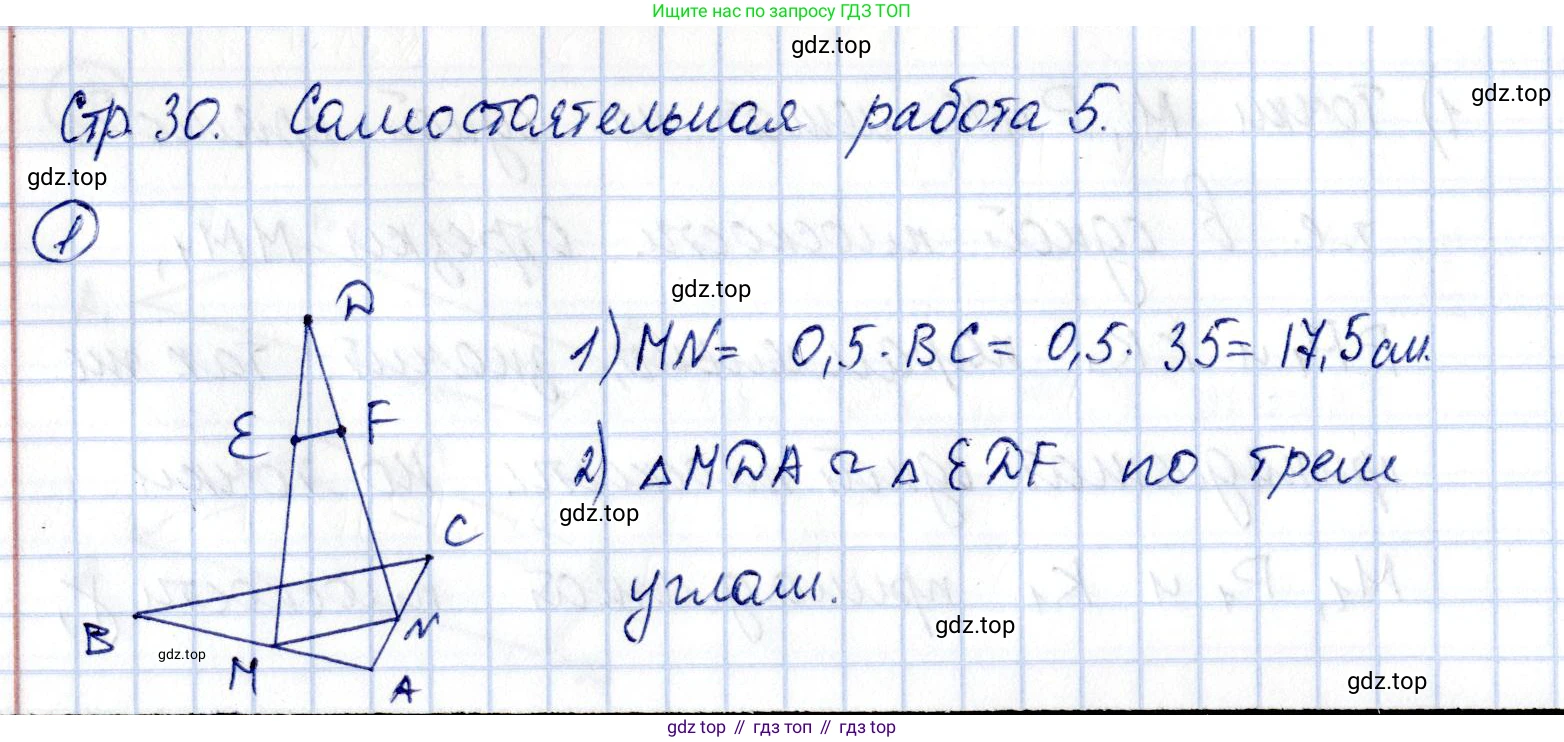 Ищите нас по запросу ГДЗ ТОП
gdz.top
gdz.top
Стр. 30. Самостоятельная работа 5.
gdz.top
1
D
gdz.top
1) MN = 0,5 · BC = 0,5 · 35 = 17,5 см.
E F
2) △MDA ~ △EDF по трем
gdz.top
C
углам.
B
N
gdz.top
gdz.top
M
A
gdz.top
gdz.top // гдз топ // гдз top